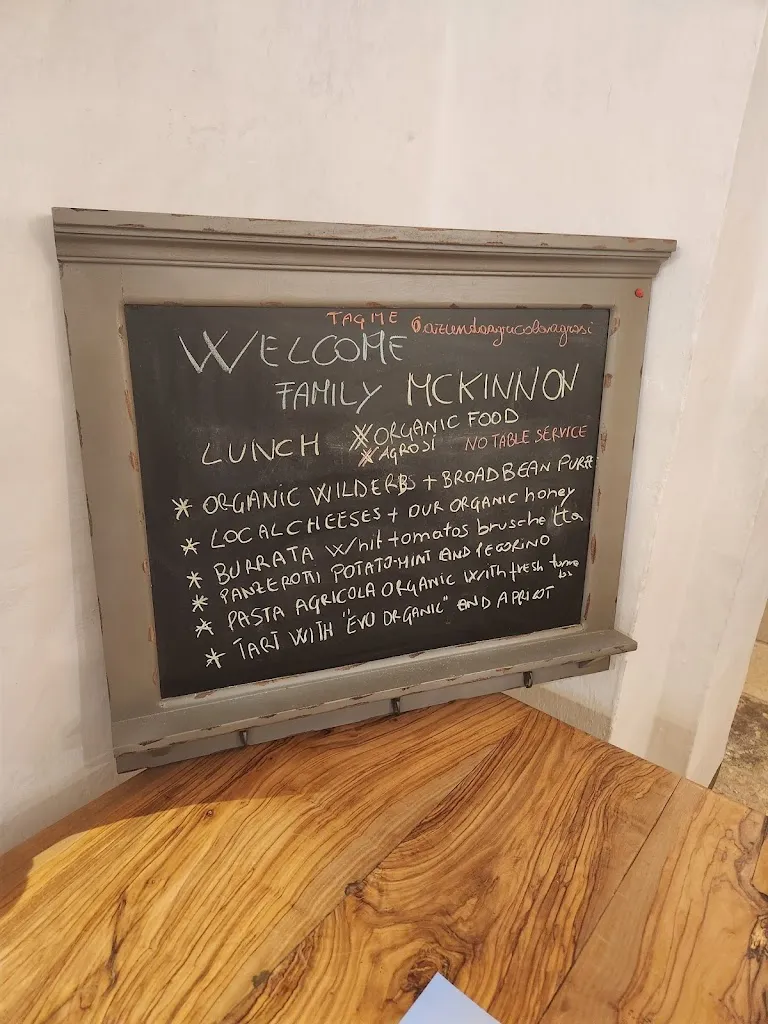 TAG ME @aziendaagricolaagrosi
WELCOME
FAMILY MCKINNON
LUNCH * ORGANIC FOOD
* AGROSI NO TABLE SERVICE
* ORGANIC WILDERBS + BROADBEAN PUREE
* LOCAL CHEESES + OUR ORGANIC honey
* BURRATA whit tomatos bruschetta
* PANZEROTTI POTATO-MINT AND PECORINO
* PASTA AGRICOLA ORGANIC with fresh
* TART WITH "EVO ORGANIC" AND APRICOT